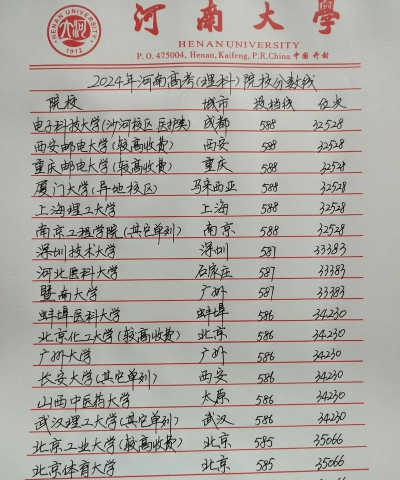 河南大學
HENAN UNIVERSITY
P. O. 475004, Henan, Kaifeng, P.R.China 中国 开封
1912
2024年河南高考(理科)院校分数线
院校 城市 投档线 位次
电子科技大学(沙河校区医护类) 成都 588 32528
西安邮电大学(较高收费) 西安 588 32528
重庆邮电大学(较高收费) 重庆 588 32528
厦门大学(异地校区) 马来西亚 588 32528
上海理工大学 上海 588 32528
南京工程学院(其它单列) 南京 588 32528
深圳技术大学 深圳 587 33383
河北医科大学 石家庄 587 33383
暨南大学 广州 587 33383
蚌埠医科大学 蚌埠 586 34230
北京化工大学(较高收费) 北京 586 34230
广州大学 广州 586 34230
长安大学(其它单列) 西安 586 34230
山西中医药大学 太原 586 34230
武汉理工大学(其它单列) 武汉 586 34230
北京工业大学(较高收费) 北京 585 35066
北京体育大学 北京 585 35066